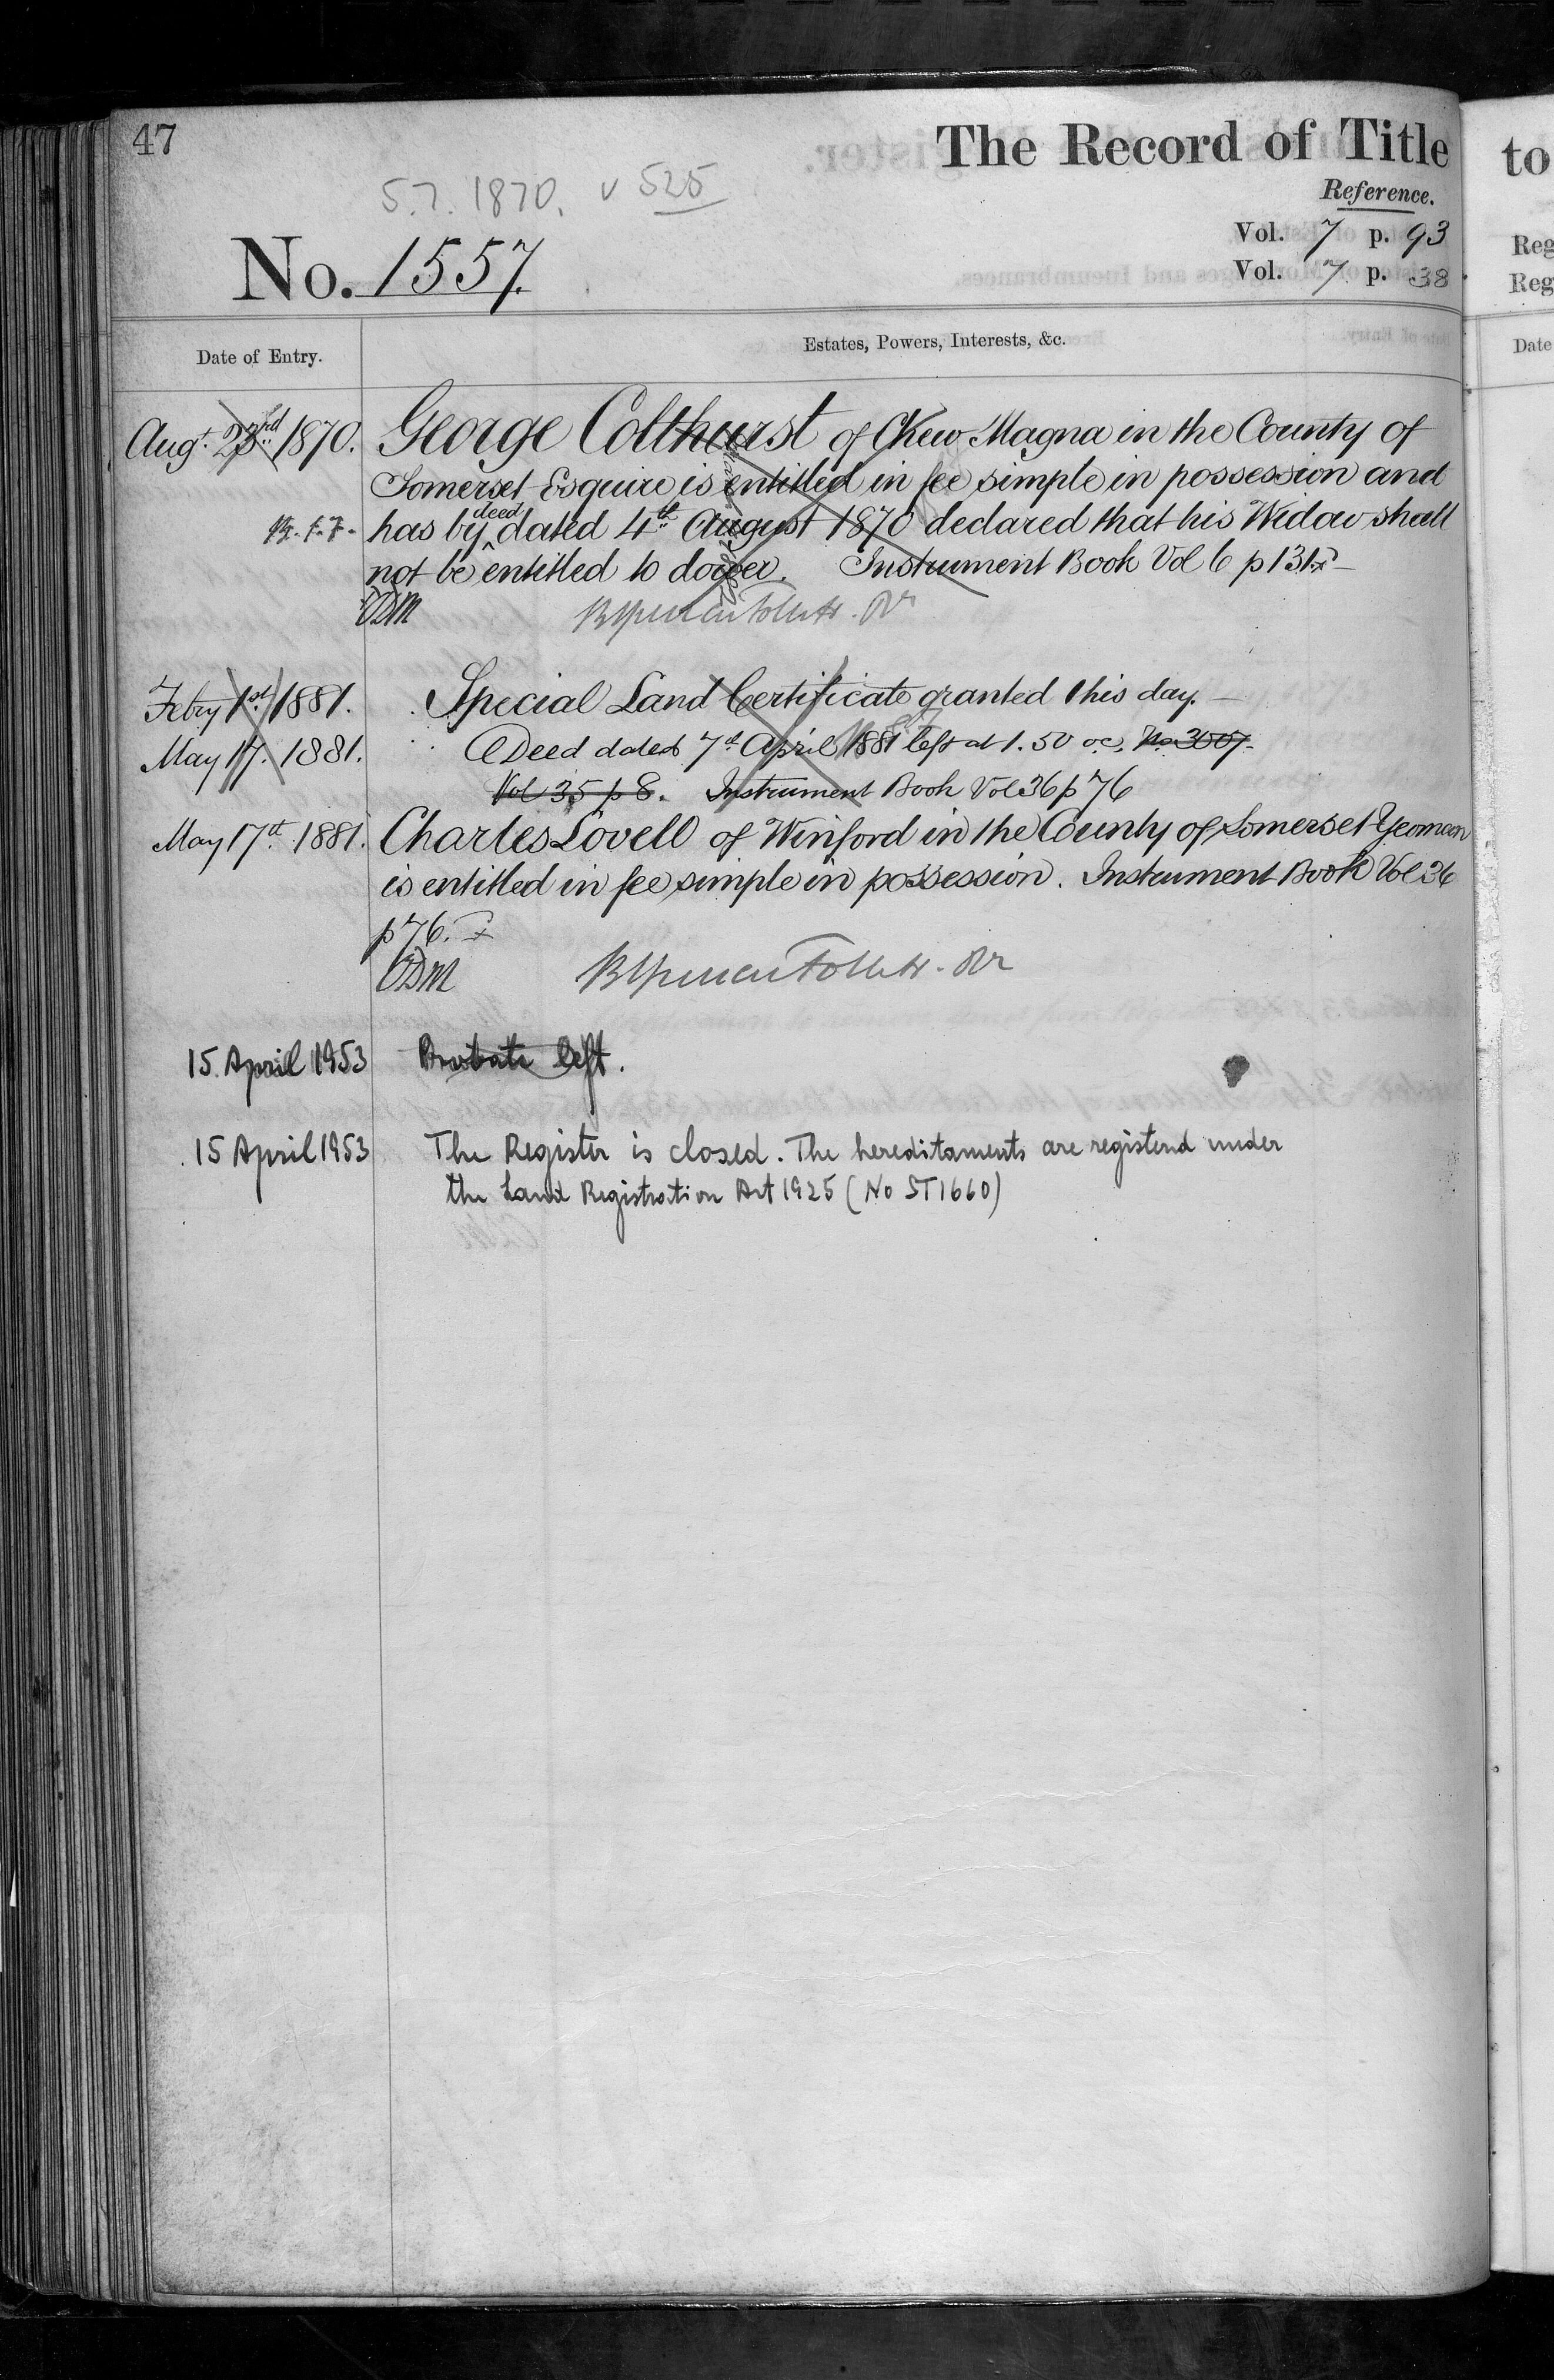 47
The Record of Title
to
5.7.1870. v 525
Reference.
Vol. 7 p. 93
Vol. 7 p. 38
No. 1557.
Reg
Reg
Date of Entry.
Estates, Powers, Interests, &c.
Date
Augt. 23rd 1870. George Colthurst of Chew Magna in the County of
Somerset Esquire is entitled in fee simple in possession and
has by deed dated 4th August 1870 declared that his Widow shall
not be entitled to dower. Instrument Book Vol 6 p 131
Febry 1st 1881. Special Land Certificate granted this day.
May 17. 1881. Deed dated 7th April 1881 left at 1.50 oc, No 3507.
Vol 35 p 8. Instrument Book Vol 36 p 76
May 17th 1881. Charles Lovell of Winford in the County of Somerset Yeoman
is entitled in fee simple in possession. Instrument Book Vol 36
p 76.
15 April 1953 Probate left.
15 April 1953 The Register is closed. The hereditaments are registerd under
the Land Registration Act 1925 (No ST1660)